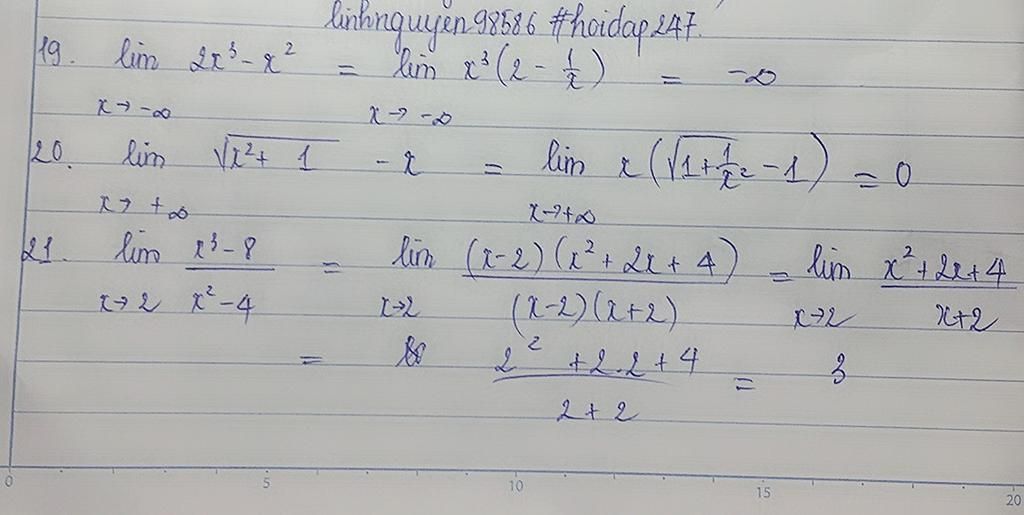 linhnguyen98586 #hoidap247.
19. lim 2x³ - x² = lim x³(2 - 1/x) = -∞
x→-∞ x→-∞
20. lim √(x² + 1) - x = lim x(√(1 + 1/x²) - 1) = 0
x→+∞ x→+∞
21. lim (x³ - 8)/(x² - 4) = lim ((x-2)(x² + 2x + 4))/((x-2)(x+2)) = lim (x² + 2x + 4)/(x+2)
x→2 x→2 x→2
= (2² + 2.2 + 4)/(2 + 2) = 3
0 5 10 15 20